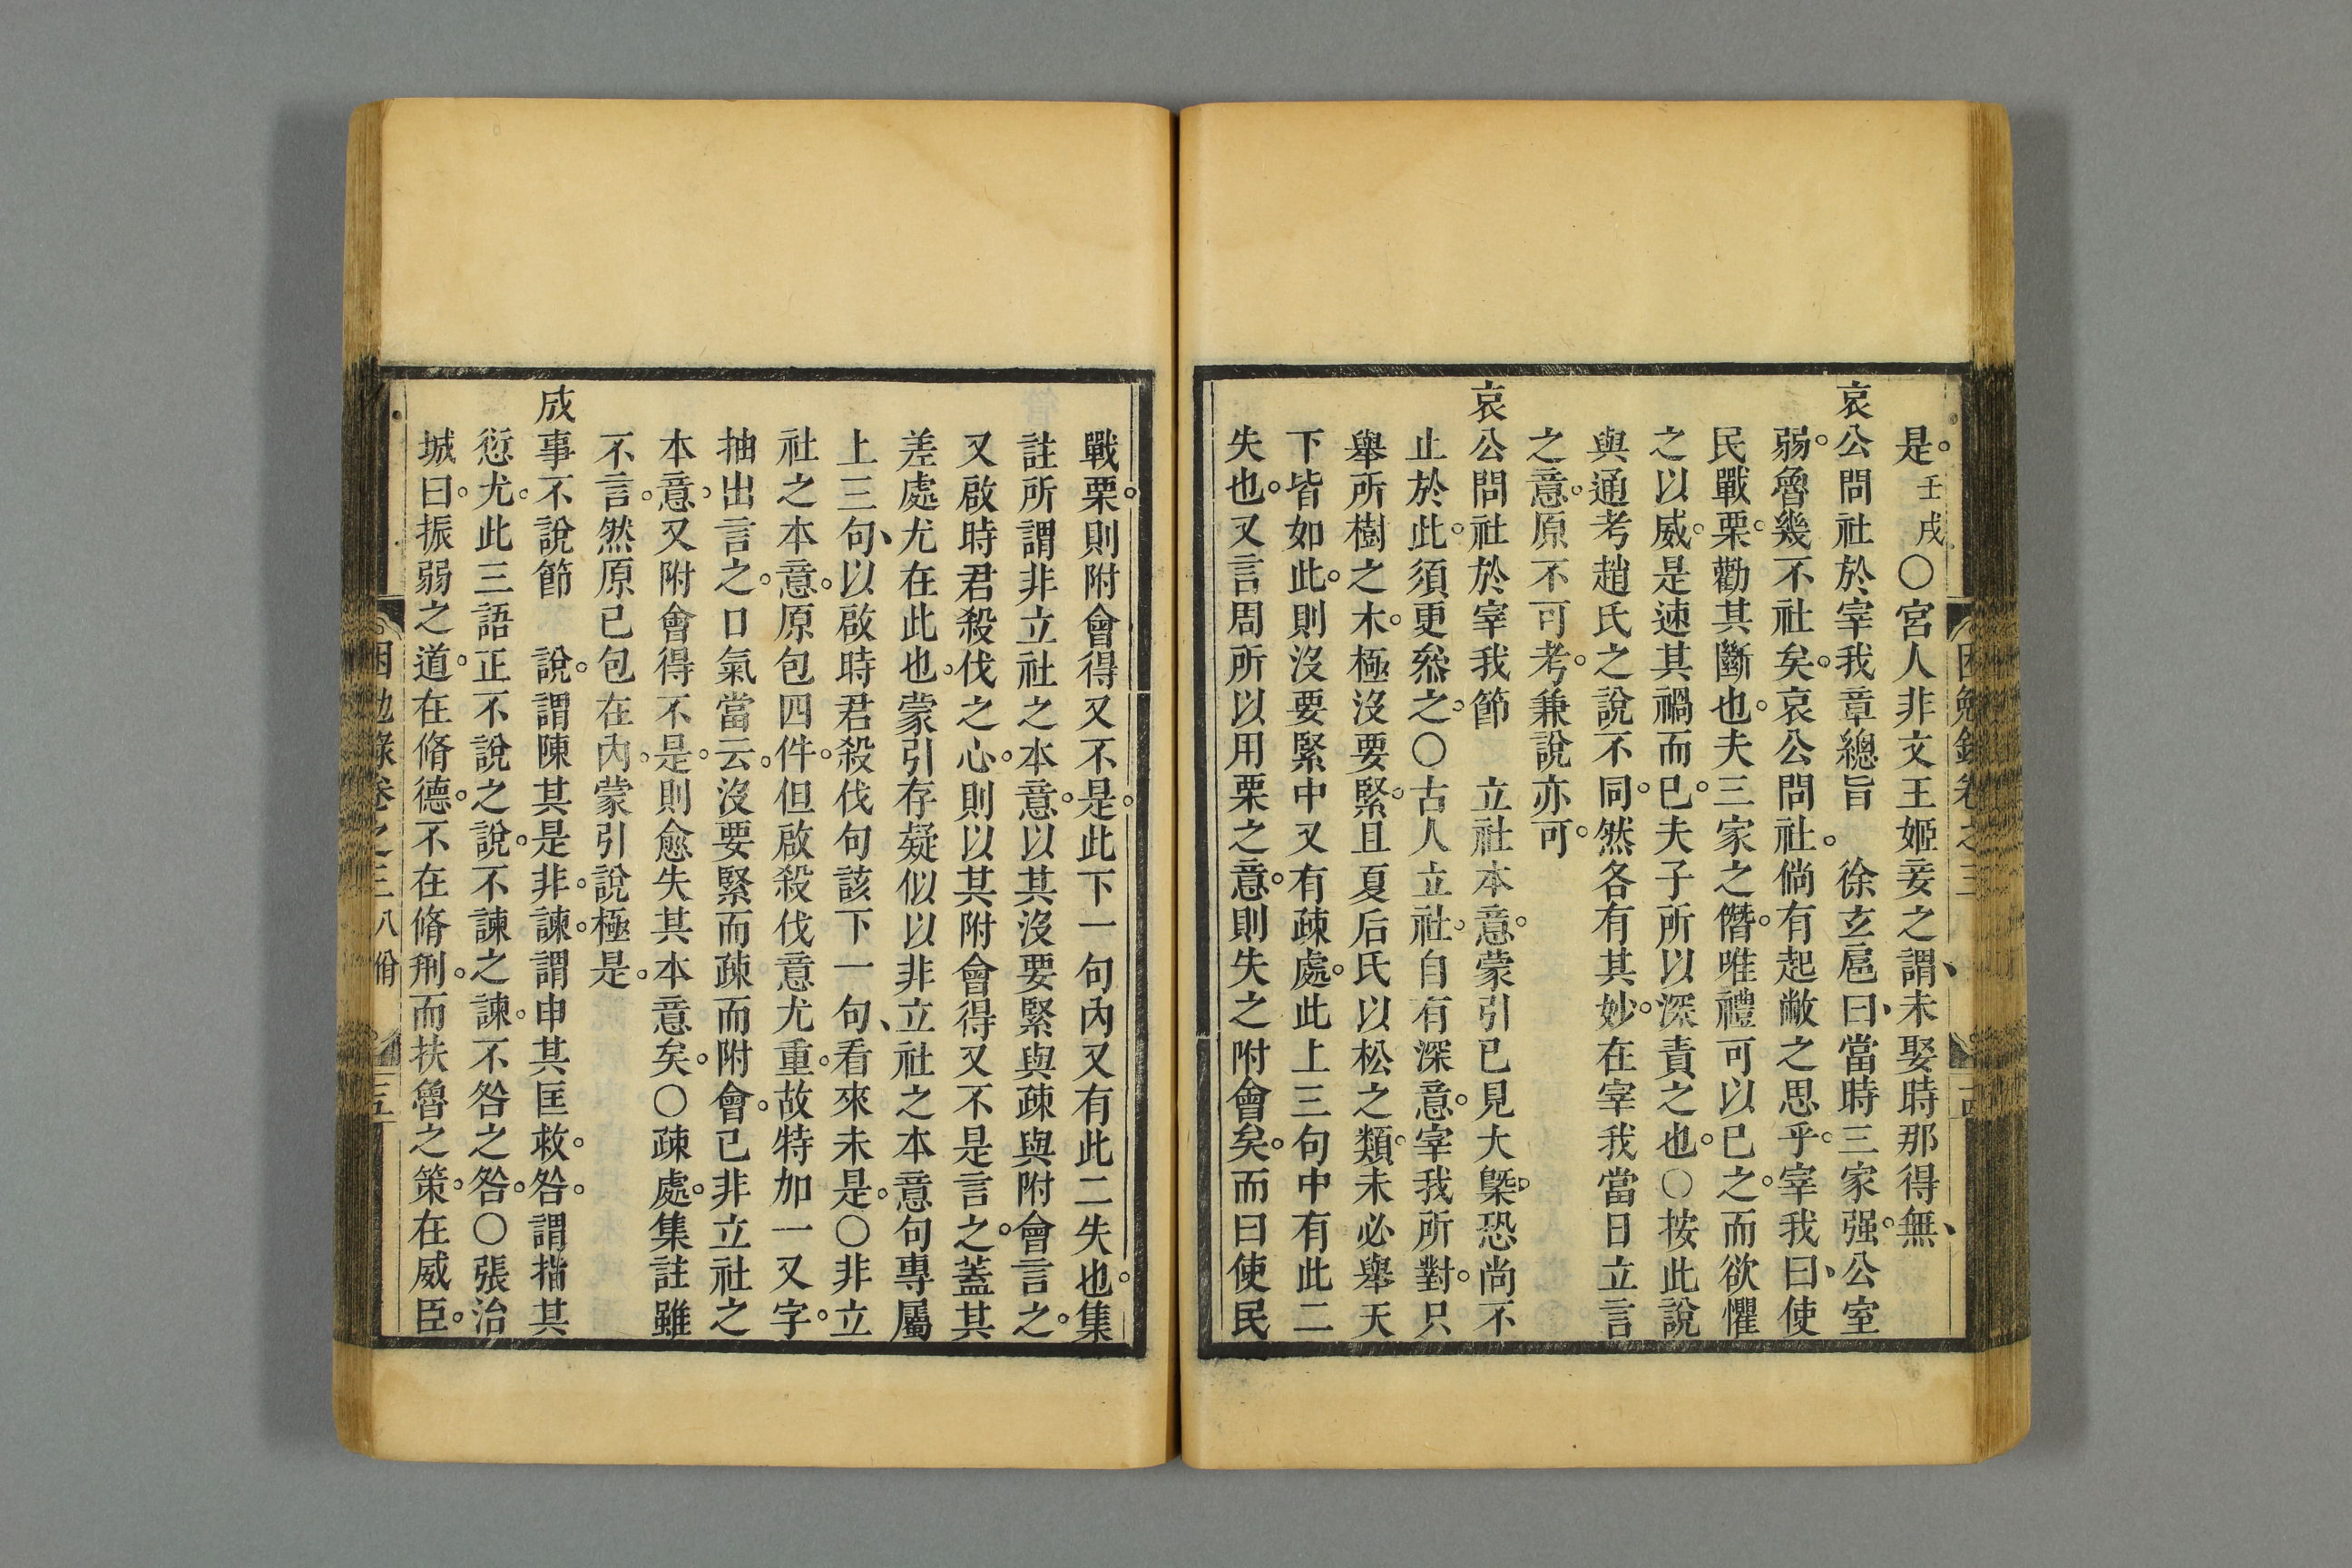 是。壬戌○宮人非文王姬妾之謂、未娶時那得無、
哀公問社於宰我章總旨。徐玄扈曰、當時三家强。公室
弱。魯幾不社矣。哀公問社。倘有起敝之思乎。宰我曰、使
民戰栗。勸其斷也。夫三家之僭。唯禮可以已之。而欲懼
之以威。是速其禍而已。夫子所以深責之也。○按此說
與通考趙氏之說不同。然各有其妙。在宰我當日立言
之意。原不可考。兼說亦可。
哀公問社於宰我節　立社本意。蒙引已見大槩。恐尚不
止於此。須更叅之。○古人立社。自有深意。宰我所對。只
舉所樹之木。極沒要緊。且夏后氏以松之類。未必舉天
下皆如此。則沒要緊中又有疎處。此上三句中有此二
失也。又言周所以用栗之意。則失之附會矣。而曰使民
戰栗。則附會得又不是。此下一句內又有此二失也。集
註所謂非立社之本意。以其沒要緊與疎與附會言之。
又啟時君殺伐之心。則以其附會得又不是言之。蓋其
差處尤在此也。蒙引存疑似以非立社之本意句專屬
上三句、以啟時君殺伐句該下一句、看來未是。○非立
社之本意。原包四件。但啟殺伐意尤重。故特加一又字。
抽出言之。口氣當云。沒要緊而疎而附會。已非立社之
本意。又附會得不是。則愈失其本意矣。○疎處。集註雖
不言。然原已包在內。蒙引說極是。
成事不說節　說。謂陳其是非。諫。謂申其匡救。咎。謂指其
愆尤。此三語正不說之說。不諫之諫。不咎之咎。○張治
城曰。振弱之道。在脩德。不在脩刑。而扶魯之策。在威臣。
困勉錄卷之三八佾　五